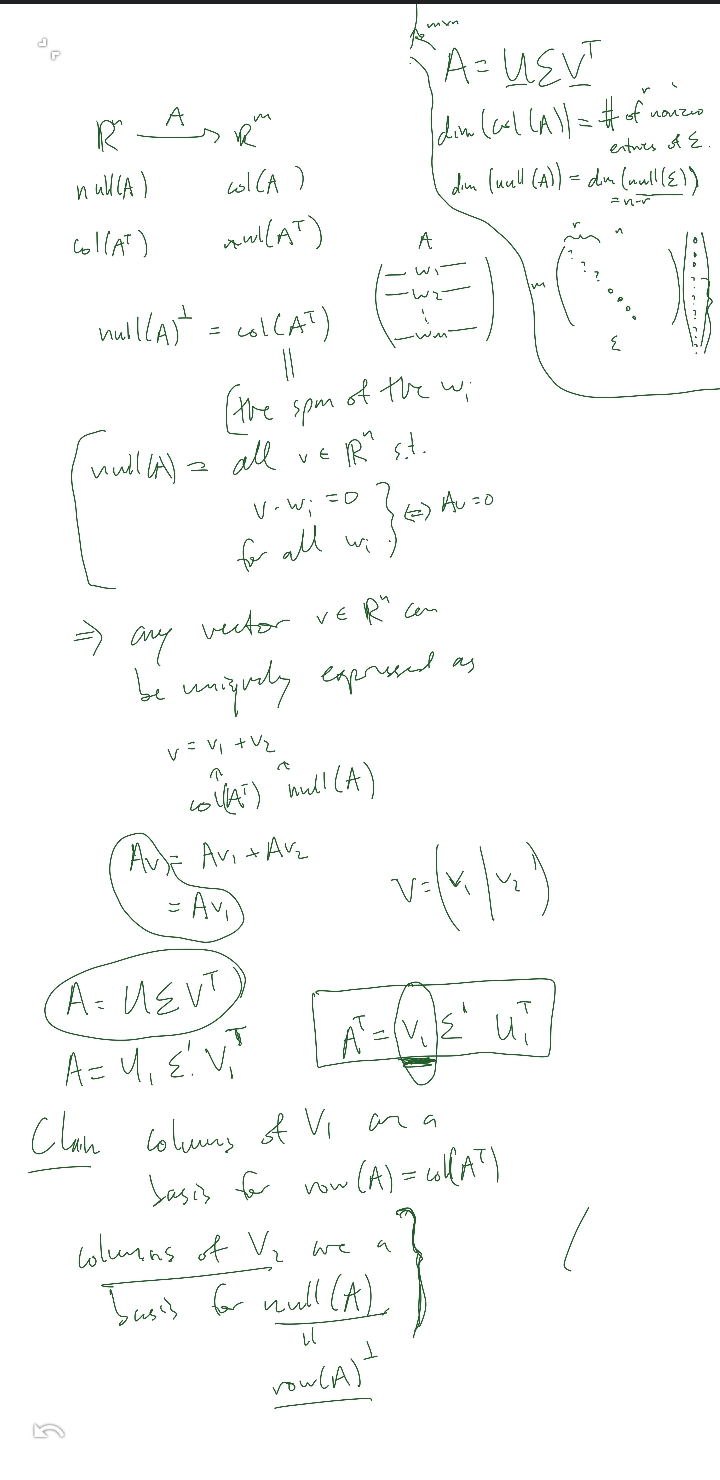 ℝ^{m×n}
A = UΣV^T
dim(col(A)) = # of nonzero
r
entries of Σ.
dim(null(A)) = dim(null(Σ))
= n-r
r n
m
Σ
ℝ^n —A→ ℝ^m
null(A) col(A)
col(A^T) null(A^T)
A
w_1
w_2
⋮
w_m
null(A)^⊥ = col(A^T)
||
the span of the w_i
null(A) = all v ∈ ℝ^n s.t.
v·w_i = 0
for all w_i
⇔ Av = 0
⇒ any vector v ∈ ℝ^n can
be uniquely expressed as
v = v_1 + v_2
↑ ↑
col(A^T) null(A)
Av = Av_1 + Av_2
= Av_1
V = (V_1 | V_2)
A = UΣV^T
A = U_1 Σ' V_1^T
A^T = V_1 Σ' U_1^T
Claim columns of V_1 are a
basis for row(A) = col(A^T)
columns of V_2 are a
basis for null(A)
||
row(A)^⊥